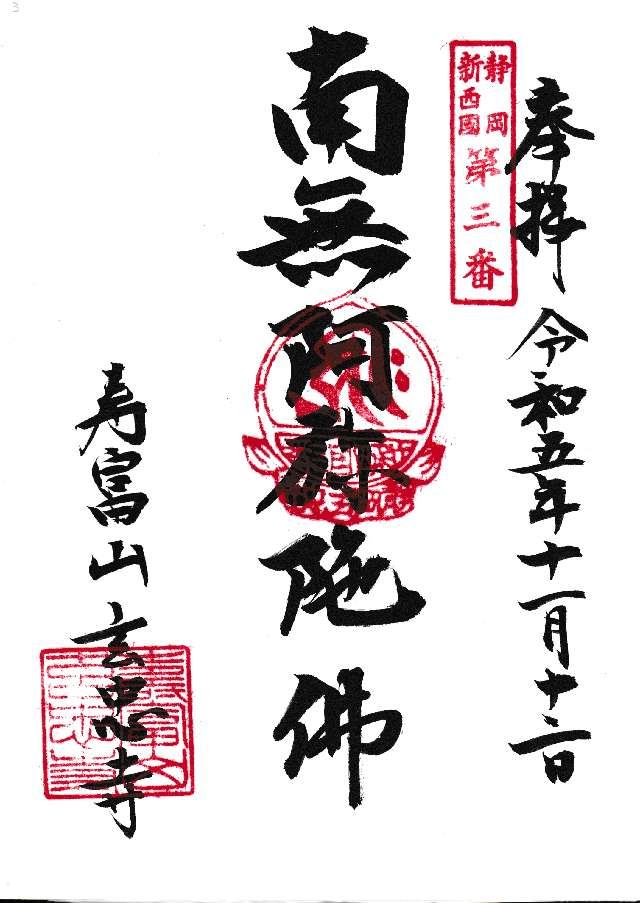 奉拝 令和五年十一月十二日
静岡
新西國
第三番
南無阿弥陀佛
寿富山 玄忠寺
3